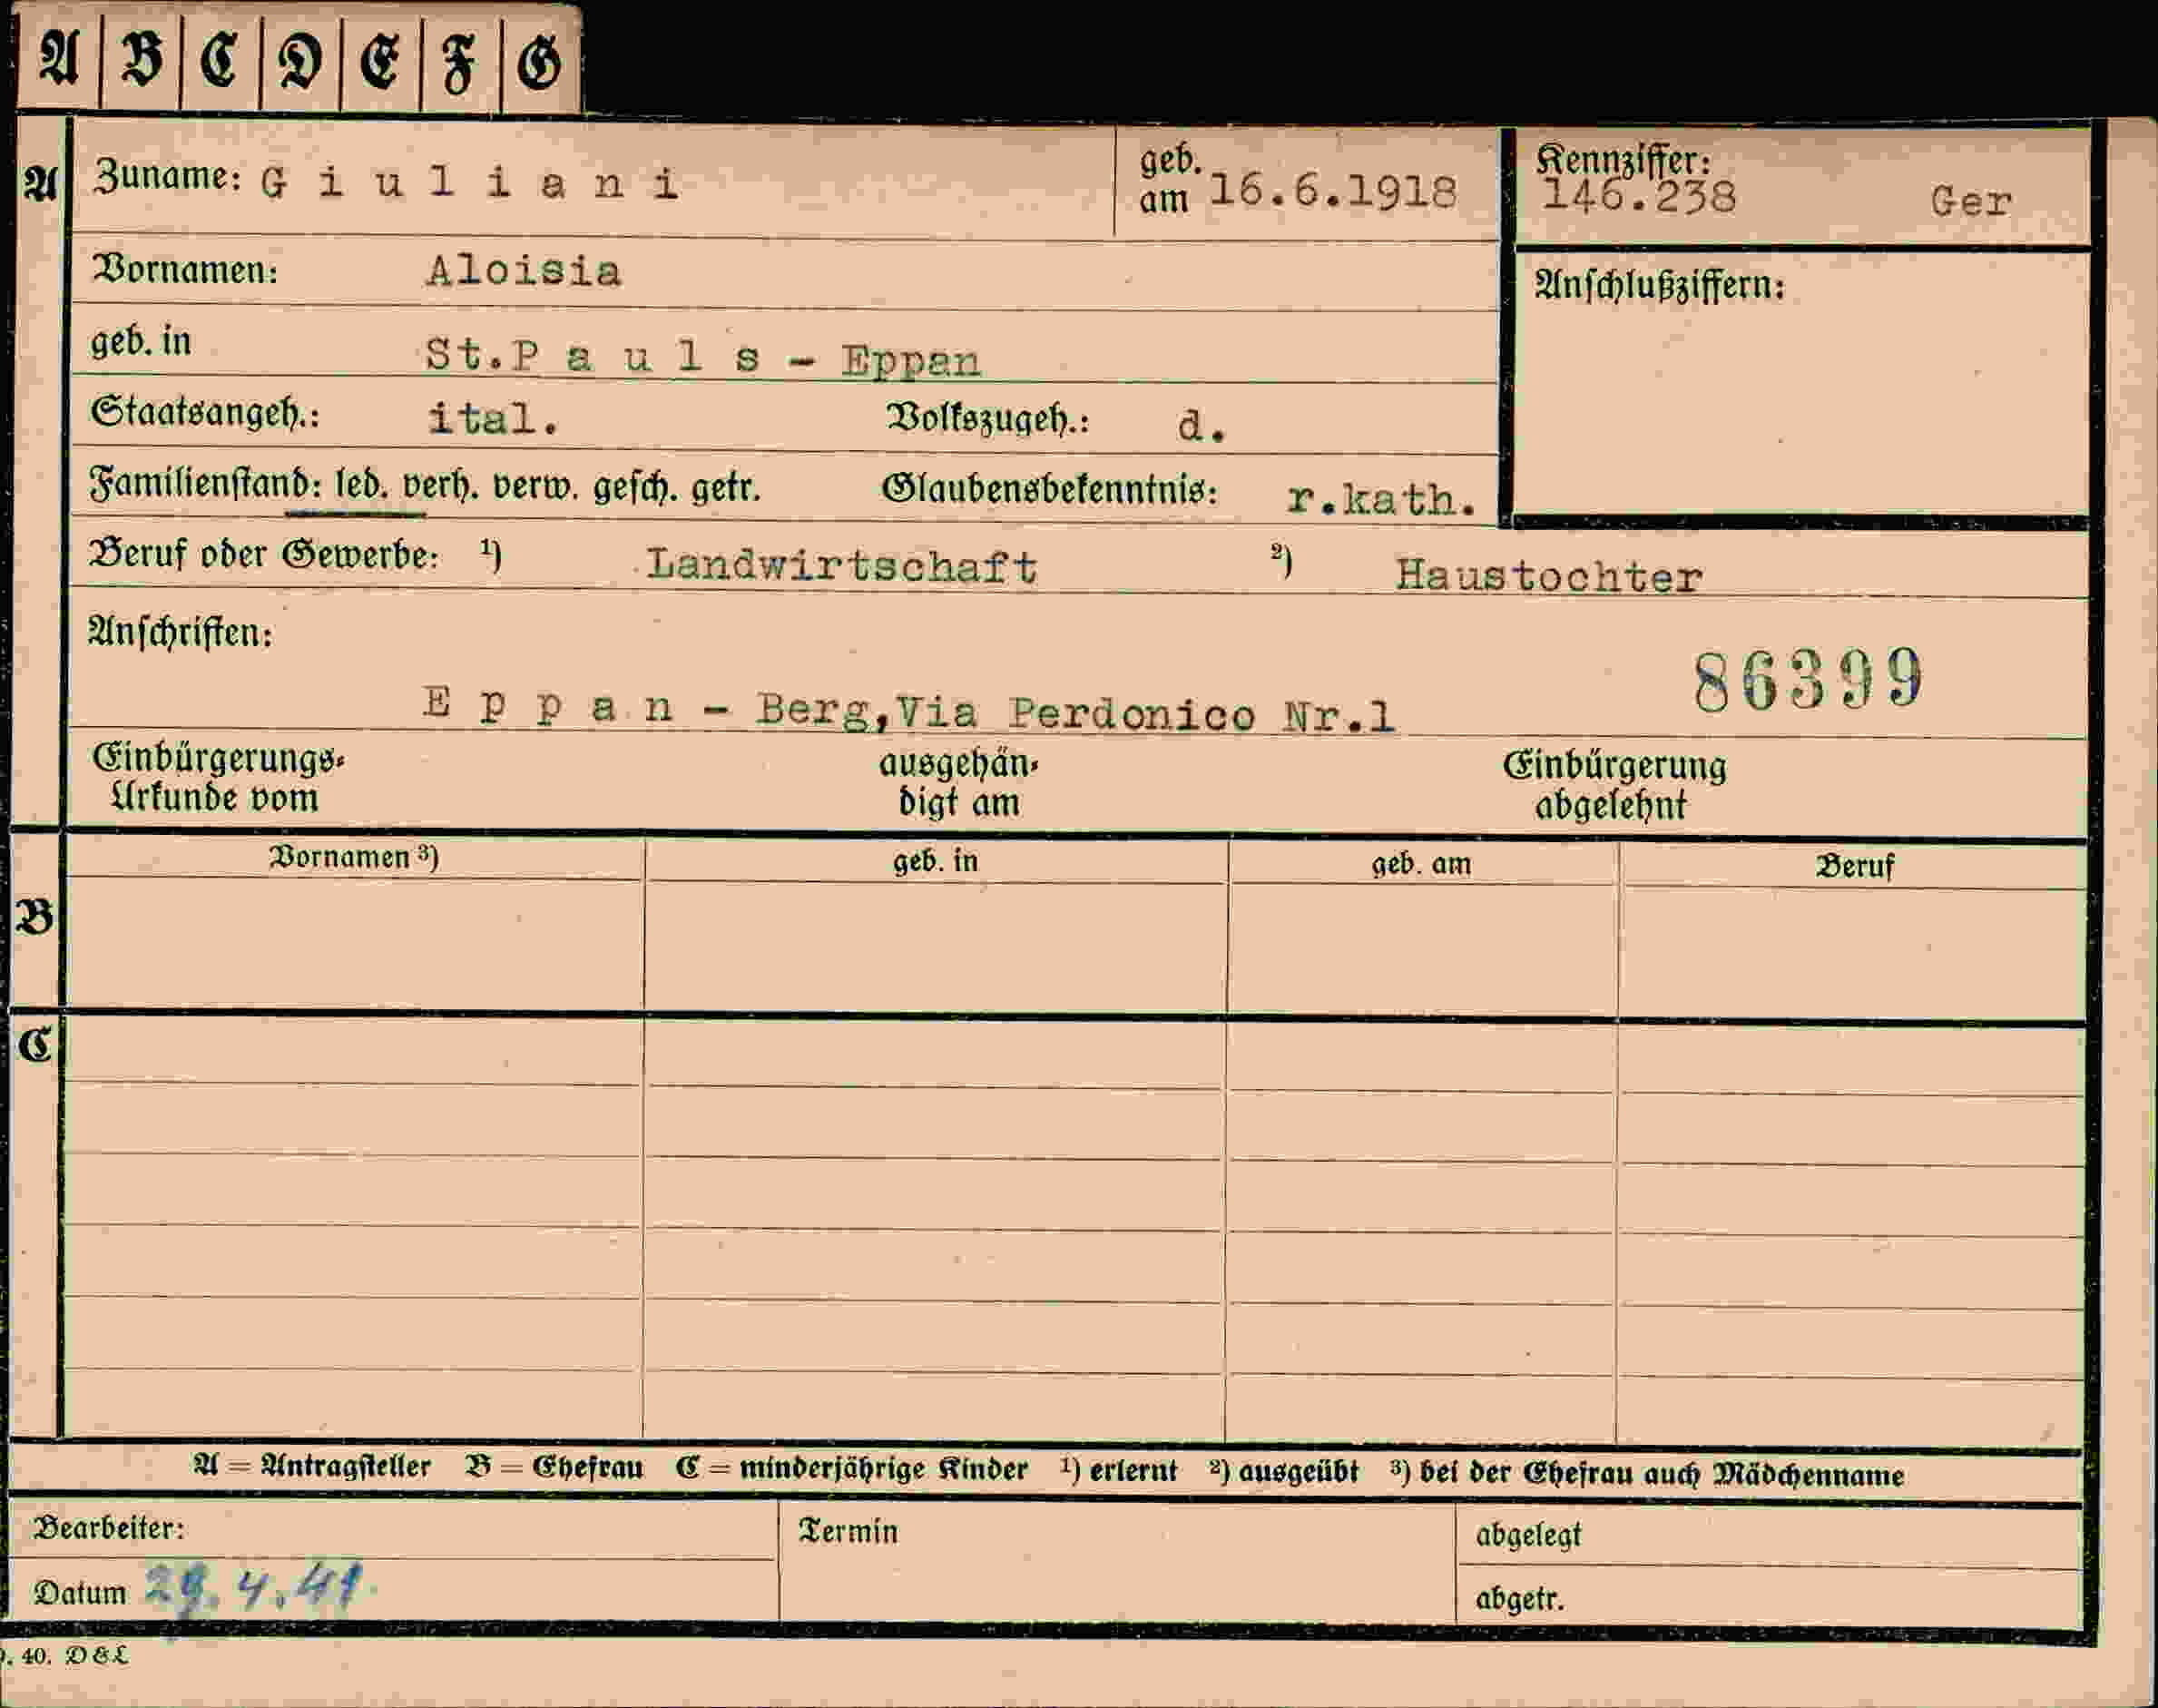 A B C D E F G
A Zuname: G i u l i a n i geb. am 16.6.1918 Kennziffer: 146.238 Ger
Vornamen: Aloisia Anschlußziffern:
geb. in St.P a u l s - Eppan
Staatsangeh.: ital. Volkszugeh.: d.
Familienstand: led. verh. verw. gesch. getr. Glaubensbekenntnis: r.kath.
Beruf oder Gewerbe: ¹) Landwirtschaft ²) Haustochter
Anschriften:
86399
E p p a n - Berg,Via Perdonico Nr.1
Einbürgerungs- ausgehän- Einbürgerung
Urkunde vom digt am abgelehnt
Vornamen ³) geb. in geb. am Beruf
B
C
A = Antragsteller B = Ehefrau C = minderjährige Kinder ¹) erlernt ²) ausgeübt ³) bei der Ehefrau auch Mädchenname
Bearbeiter: Termin abgelegt
Datum 29.4.41 abgetr.
. 40. D&L